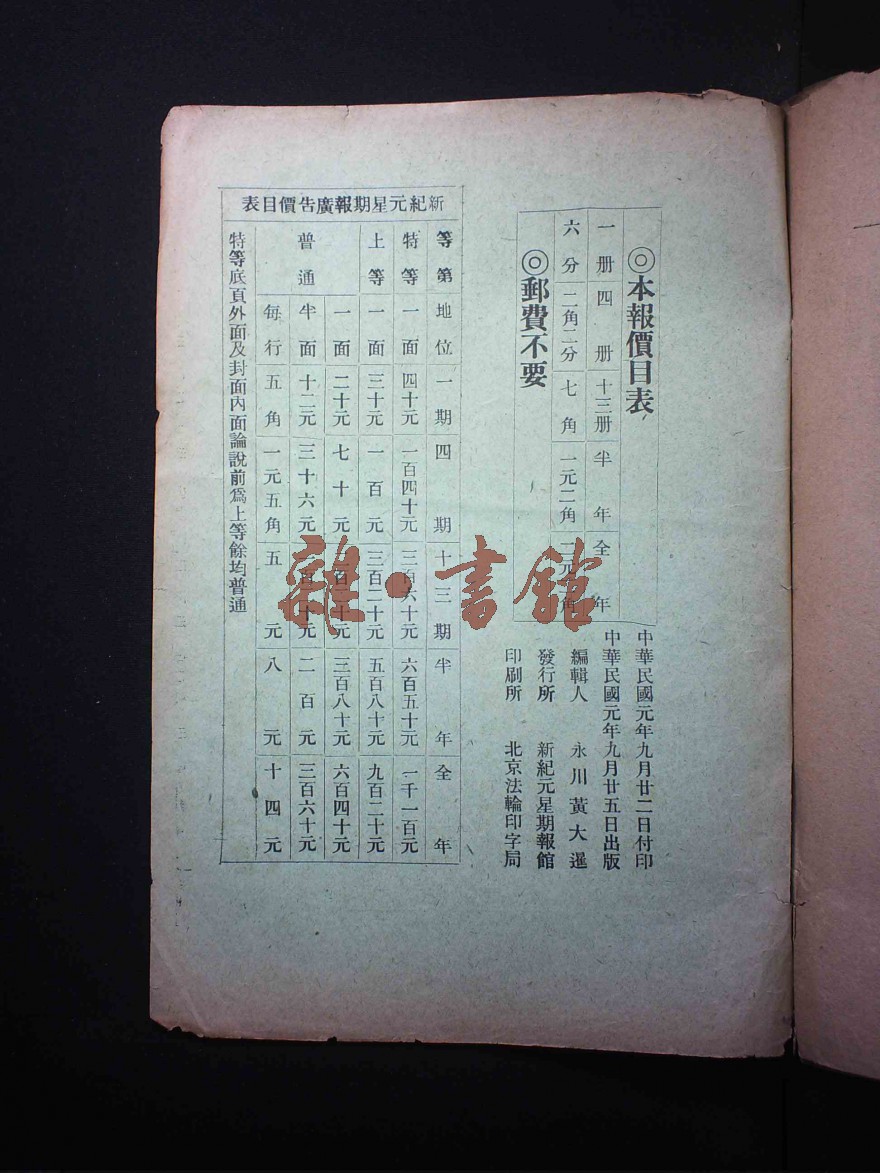 ◎本報價目表
一册 四册 十三册 半年 全年
六分 二角二分 七角 一元二角
◎郵費不要
中華民國元年九月廿二日付印
中華民國元年九月廿五日出版
編輯人 永川黃大暹
發行所 新紀元星期報館
印刷所 北京法輪印字局
新紀元星期報廣告價目表
等第 地位 一期 四期 十三期 半年 全年
特等 一面 四十元 一百四十元 三百六十元 六百五十元 一千一百元
上等 一面 三十元 一百元 三百二十元 五百八十元 九百二十元
普通 一面 二十元 七十元 三百八十元 六百四十元
半面 十二元 三十六元 二百元 三百六十元
每行 五角 一元五角 五元 八元 十四元
特等底頁外面及封面內面論說前爲上等餘均普通
雜·書館